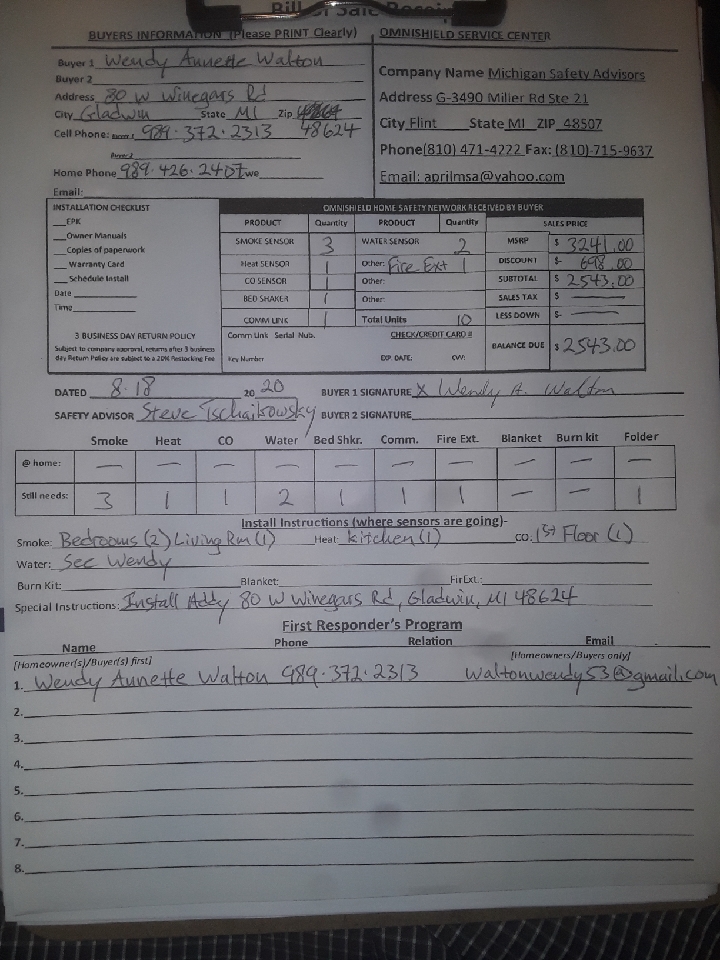 Bill of Sale Receipt
BUYERS INFORMATION (Please PRINT Clearly)
Buyer 1 Wendy Annette Walton
Buyer 2
Address 80 W Winegars Rd
City Gladwin State MI Zip 48624
Cell Phone: Buyer 1 989.372.2313
Buyer 2
Home Phone 989.426.2407 we
Email:
OMNISHIELD SERVICE CENTER
Company Name Michigan Safety Advisors
Address G-3490 Miller Rd Ste 21
City Flint State MI ZIP 48507
Phone(810) 471-4222 Fax: (810)-715-9637
Email: aprilmsa@yahoo.com
INSTALLATION CHECKLIST
EPK
Owner Manuals
Copies of paperwork
Warranty Card
Schedule Install
Date
Time
3 BUSINESS DAY RETURN POLICY
Subject to company approval, returns after 3 business
day Return Policy are subject to a 20% Restocking Fee
OMNISHIELD HOME SAFETY NETWORK RECEIVED BY BUYER
PRODUCT Quantity PRODUCT Quantity SALES PRICE
SMOKE SENSOR 3 WATER SENSOR 2 MSRP $ 3241.00
Heat SENSOR 1 Other: Fire Ext 1 DISCOUNT $- 698.00
CO SENSOR 1 Other: SUBTOTAL $ 2543.00
BED SHAKER 1 Other: SALES TAX $ —
COMM LINK 1 Total Units 10 LESS DOWN $- —
Comm Link Serial Nub. CHECK/CREDIT CARD # BALANCE DUE $ 2543.00
Key Number EXP. DATE: CVV:
DATED 8.18 20 20 BUYER 1 SIGNATURE X Wendy A. Walton
SAFETY ADVISOR Steve Tschaikowsky BUYER 2 SIGNATURE
Smoke Heat CO Water Bed Shkr. Comm. Fire Ext. Blanket Burn kit Folder
@ home: — — — — — — — — — —
Still needs: 3 1 1 2 1 1 1 — — 1
Install Instructions (where sensors are going)-
Smoke: Bedrooms (2) Living Rm (1) Heat: Kitchen (1) CO: 1st Floor (1)
Water: See Wendy
Burn Kit: Blanket: FirExt.:
Special Instructions: Install Addy 80 W Winegars Rd, Gladwin, MI 48624
First Responder's Program
Name Phone Relation Email
[Homeowner(s)/Buyer(s) first] [Homeowners/Buyers only]
1. Wendy Annette Walton 989.372.2313 waltonwendy53@gmail.com
2.
3.
4.
5.
6.
7.
8.